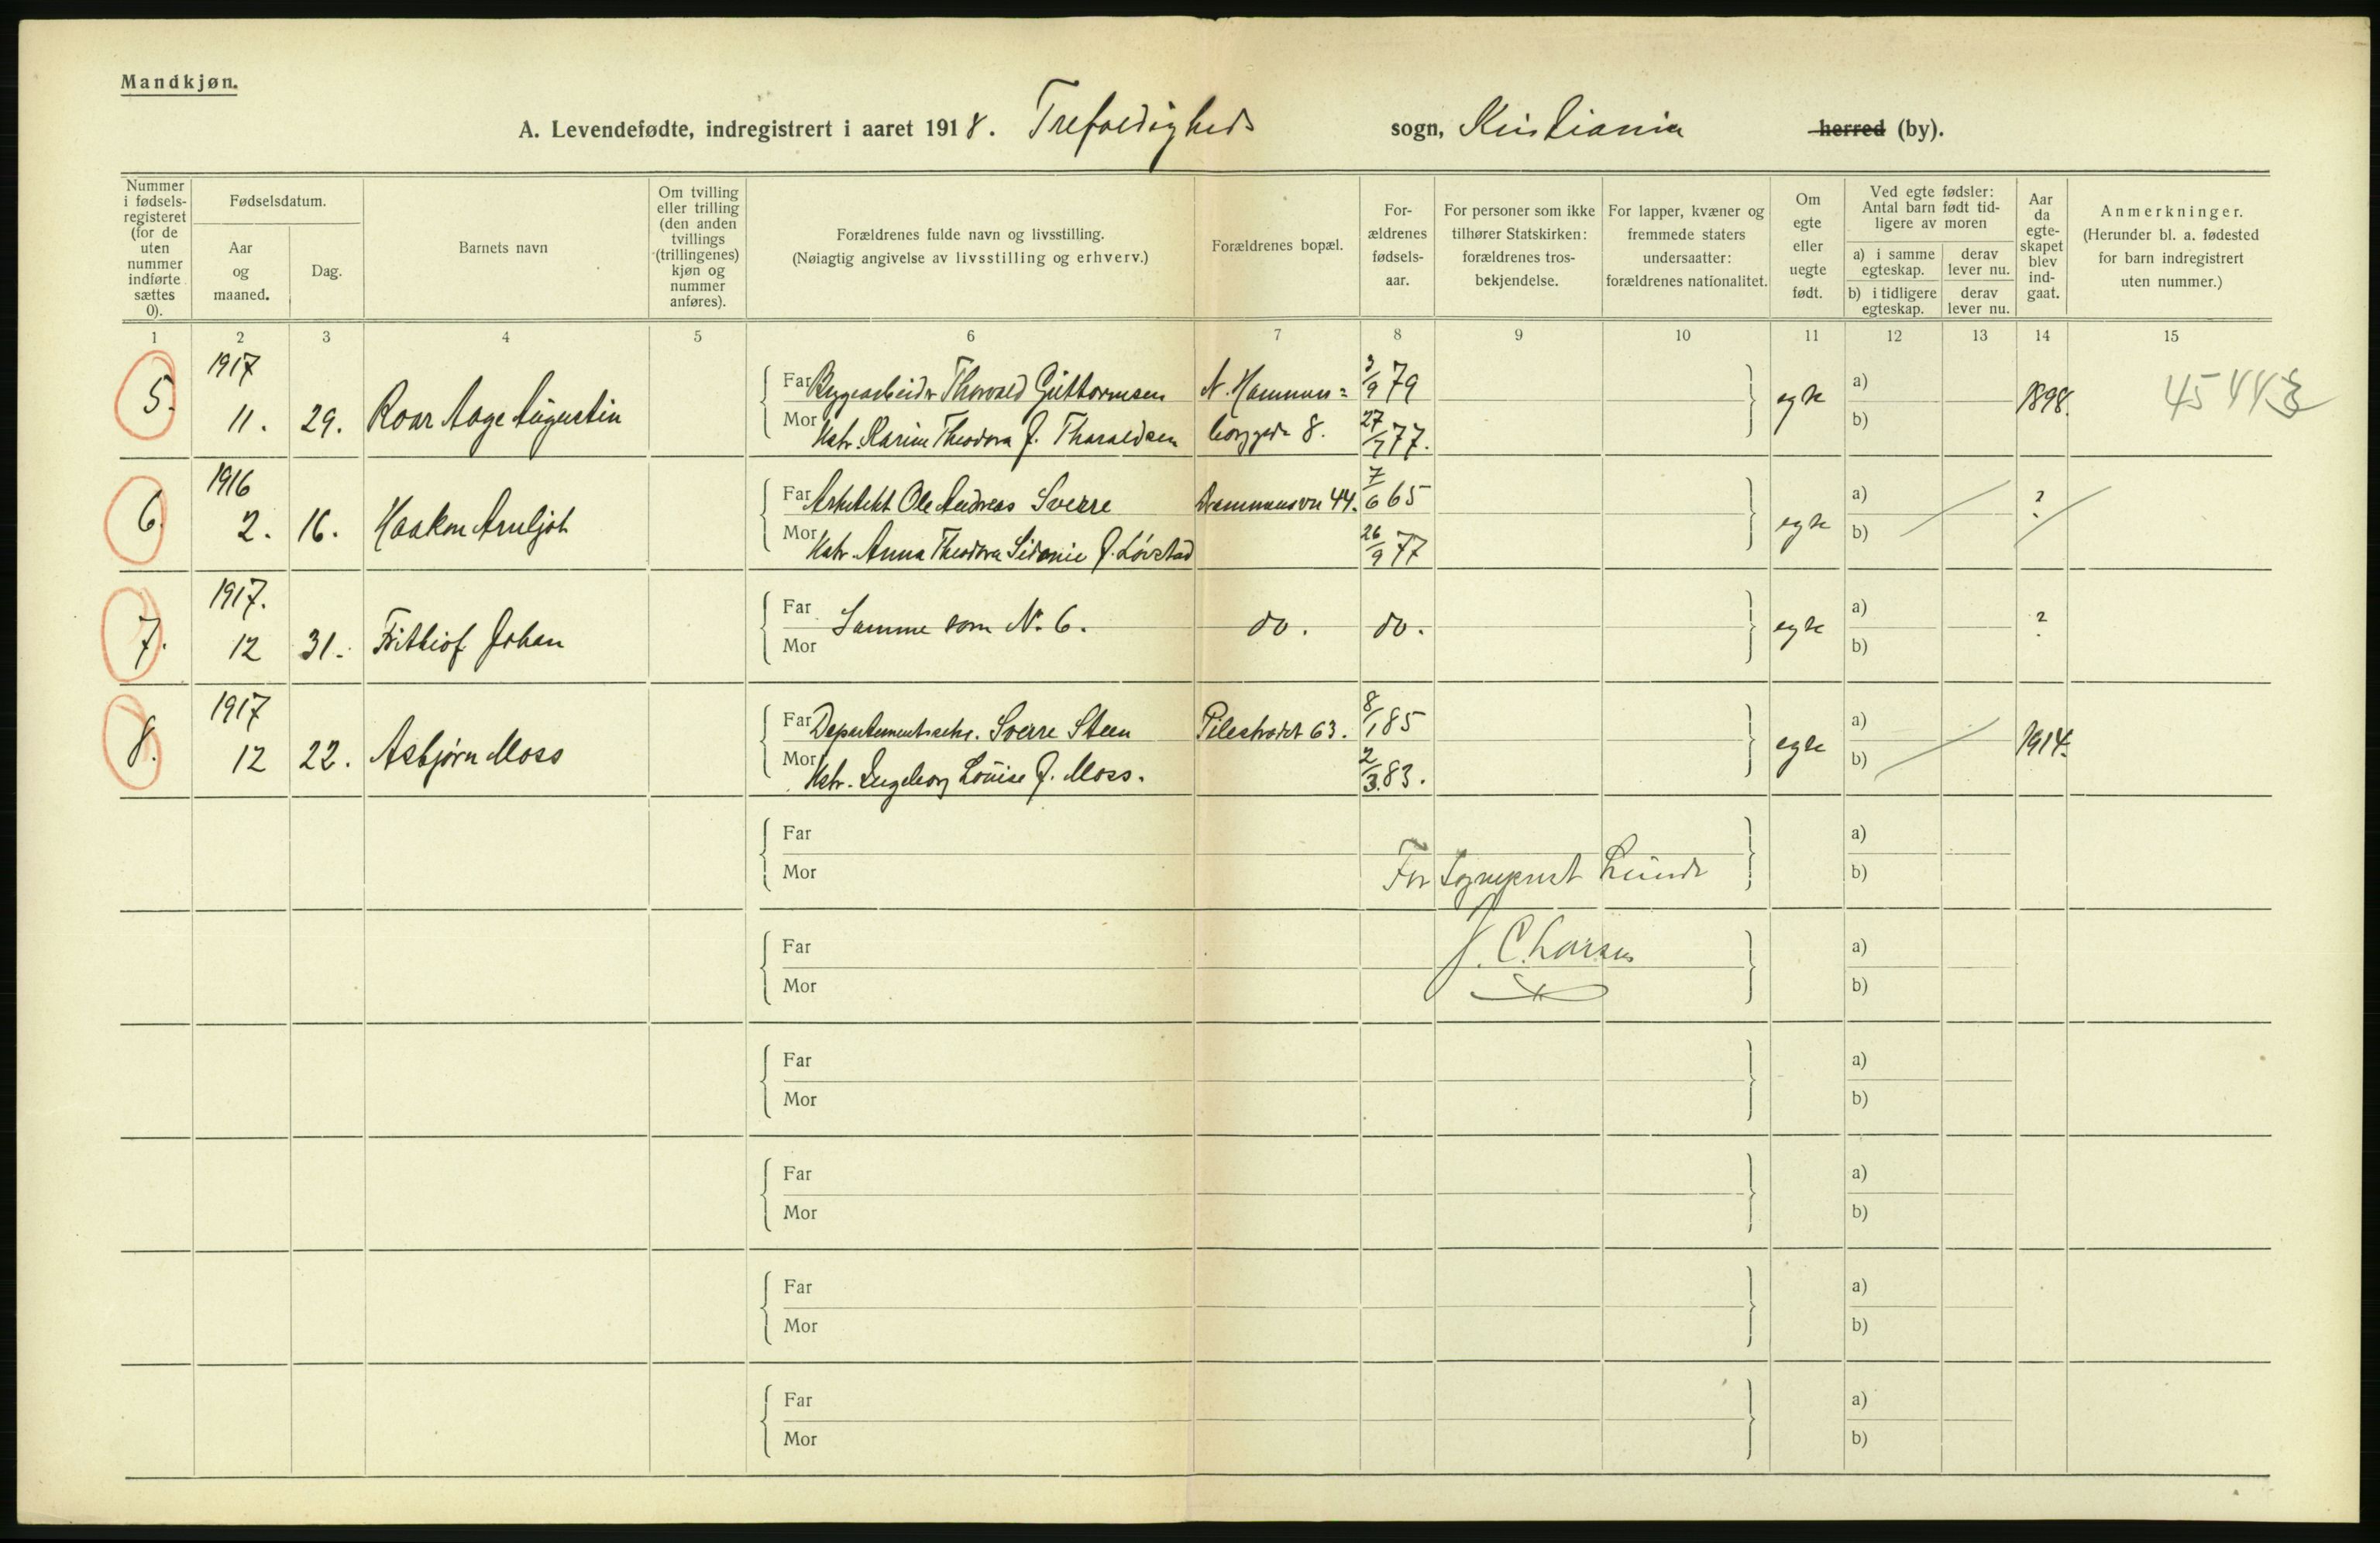 Mandkjøn.
A. Levendefødte, indregistrert i aaret 1918. Trefoldigheds sogn, Kristiania herred (by).
Nummer i fødsels-registeret (for de uten nummer indførte sættes 0).
Fødselsdatum.
Aar og maaned.
Dag.
Barnets navn
Om tvilling eller trilling (den anden tvillings (trillingenes) kjøn og nummer anføres).
Forældrenes fulde navn og livsstilling.
(Nøiagtig angivelse av livsstilling og erhverv.)
Forældrenes bopæl.
For-ældrenes fødsels-aar.
For personer som ikke tilhører Statskirken: forældrenes tros-bekjendelse.
For lapper, kvæner og fremmede staters undersaatter: forældrenes nationalitet.
Om egte eller uegte født.
Ved egte fødsler: Antal barn født tid-ligere av moren
a) i samme egteskap. derav lever nu.
b) i tidligere egteskap. derav lever nu.
Aar da egte-skapet blev ind-gaat.
Anmerkninger.
(Herunder bl. a. fødested for barn indregistrert uten nummer.)
1 2 3 4 5 6 7 8 9 10 11 12 13 14 15
5. 1917 11. 29. Roar Aage Augustin
Far Byggearbeider Thorvald Guttormsen N. Hammers= 3/9 79
Mor Hstr. Karine Theodora f. Tharaldsen borggde 8. 27/7 77.
egte a) b) 1898.
6. 1916 2. 16. Haakon Arnljot
Far Arkitekt Ole Andreas Sverre Drammensvn 44. 7/6 65
Mor Hstr. Anna Theodora Sidonie f. Løvstad 26/9 77
egte a) b) ?
7. 1917. 12 31. Frithiof Johan
Far Mor Samme som N. 6. do. do.
egte a) b) ?
8. 1917 12 22. Asbjørn Moss
Far Departementssekr. Sverre Steen Pilestrædet 63. 8/1 85
Mor Hstr. Ingeborg Louise f. Moss. 2/3 83.
egte a) b) 1914.
Far a)
Mor b)
For Sogneprest Lunde
Far a)
J. C. Larsen
Mor b)
Far a)
Mor b)
Far a)
Mor b)
Far a)
Mor b)
Far a)
Mor b)